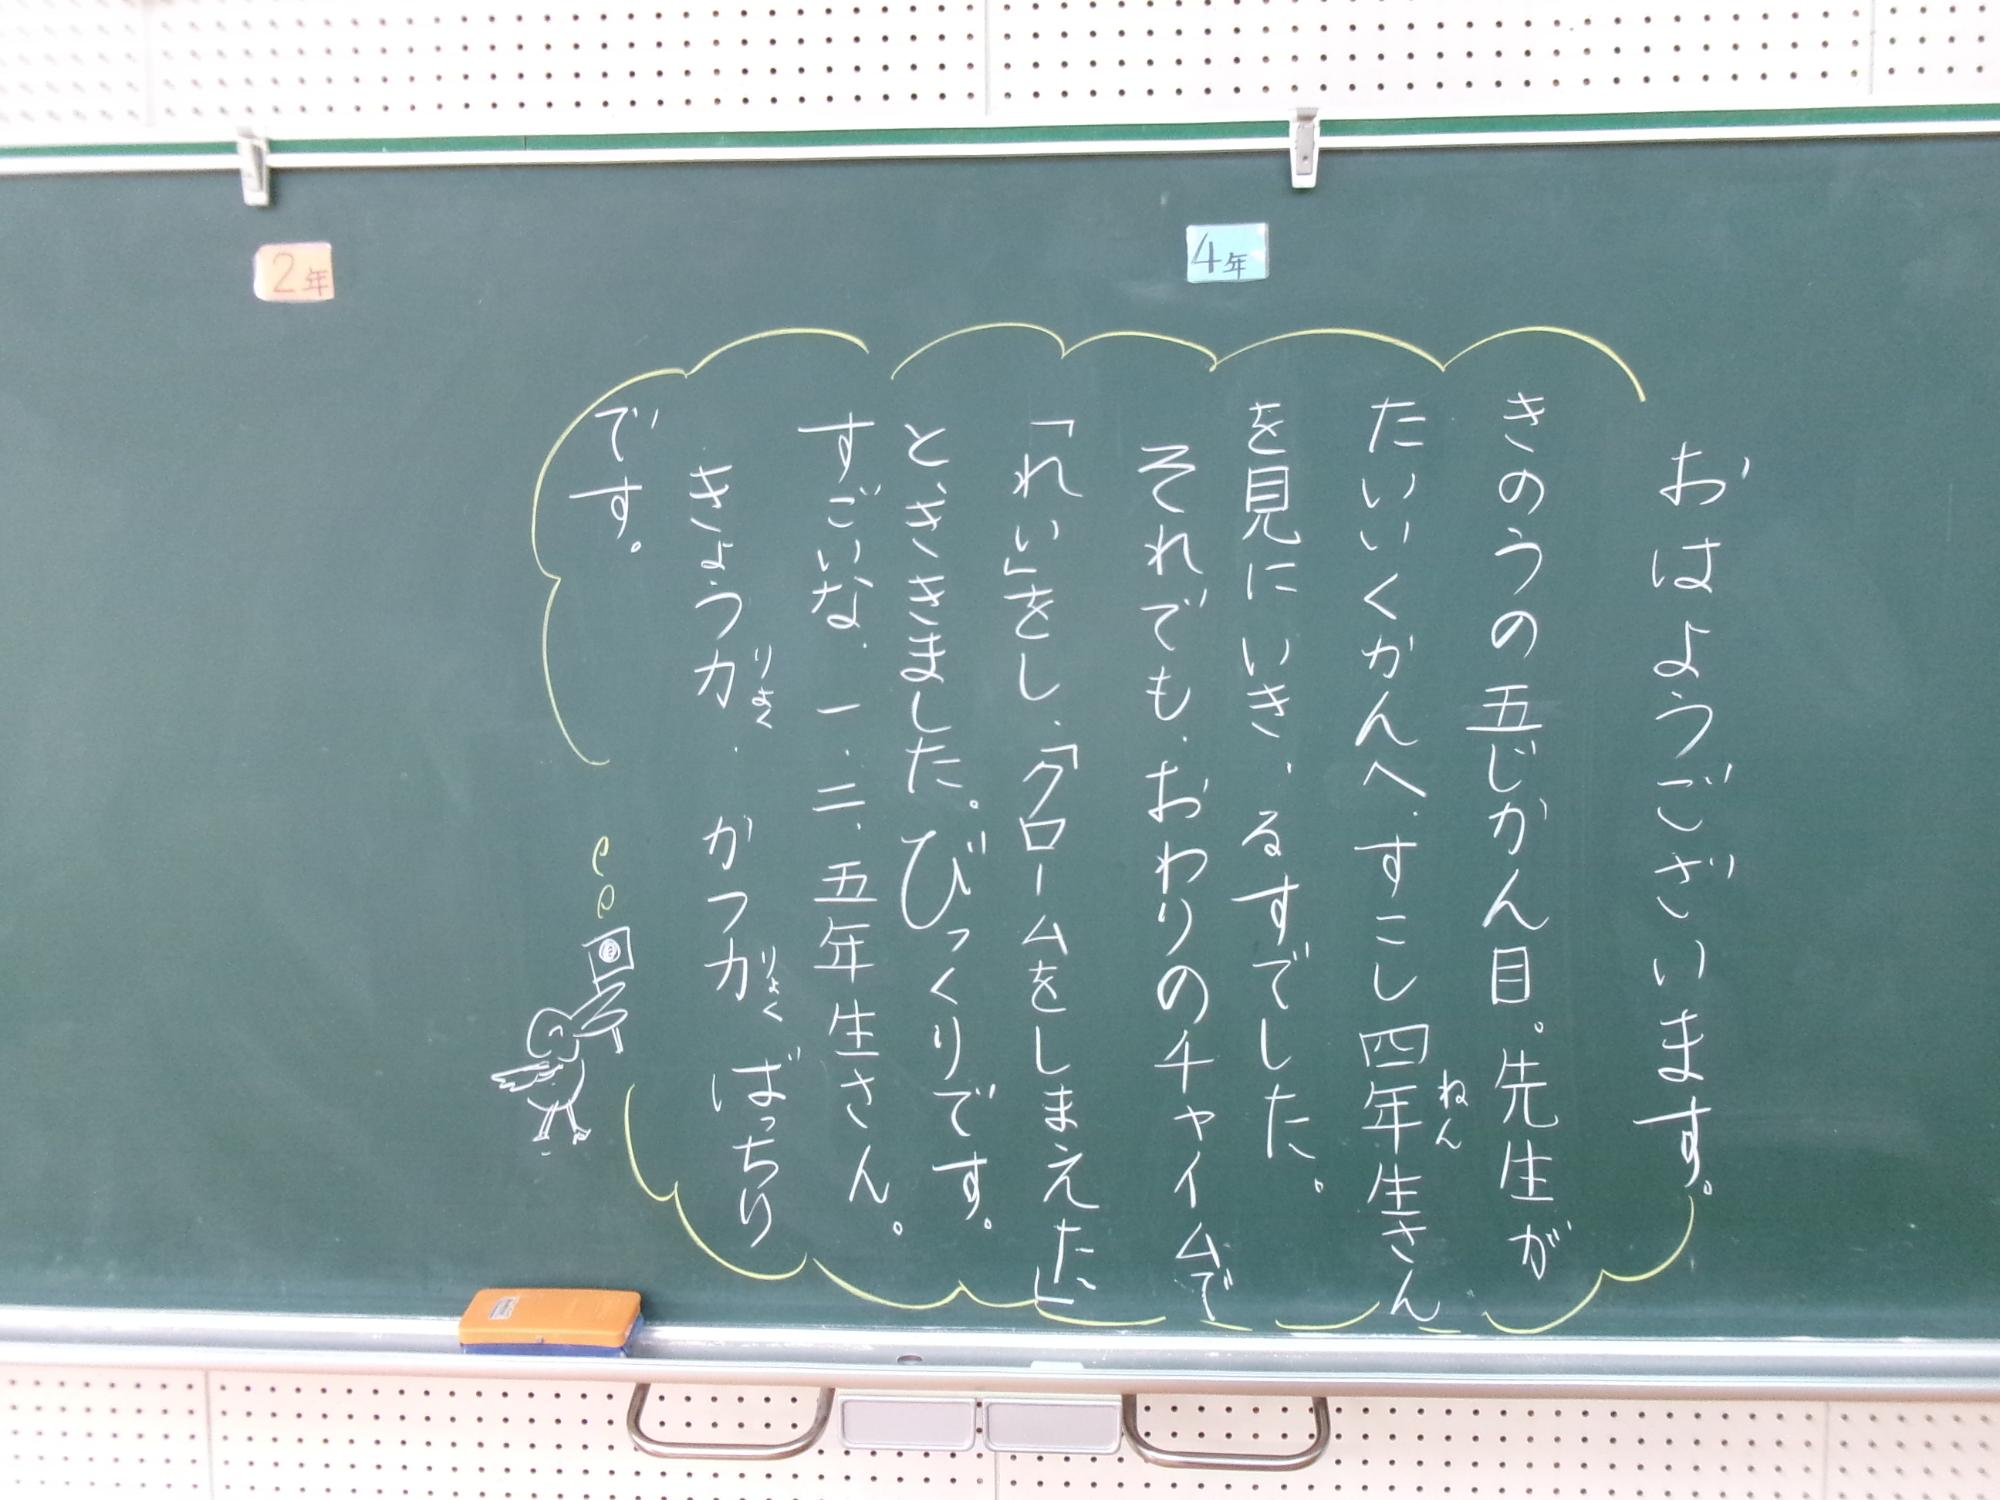 2年
4年
おはようございます。
きのうの五じかん目。先生が
たいいくかんへ、すこし四年生さん
ねん
を見にいき、るすでした。
それでも、おわりのチャイムで
「れい」をし、「クロームをしまえた」
と、ききました。びっくりです。
すごいな、一、二、五年生さん。
きょう力、かつ力ばっちり
りょく
りょく
です。